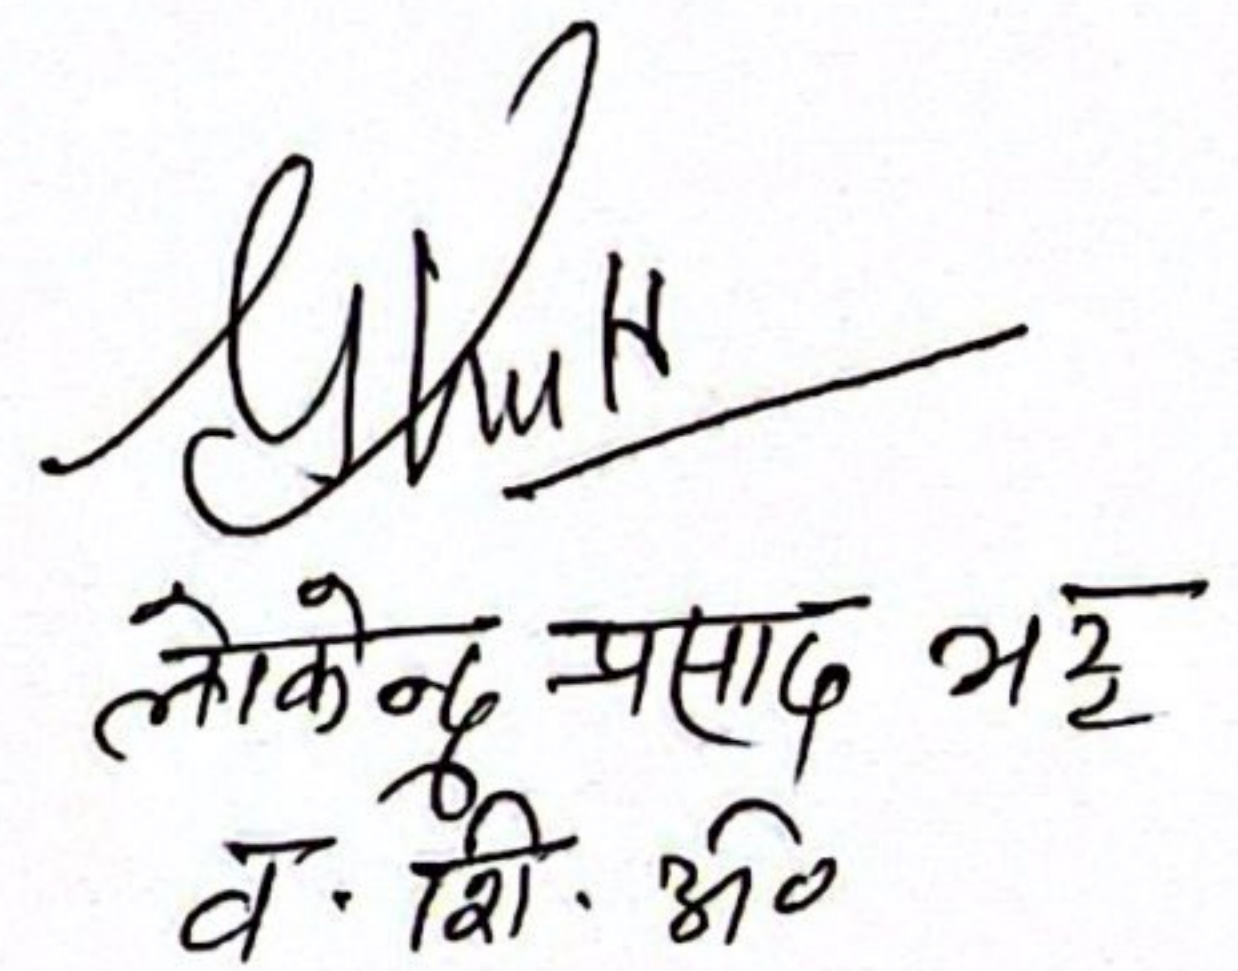 लोकेन्द्र प्रसाद भट्ट
व. शि. अ०